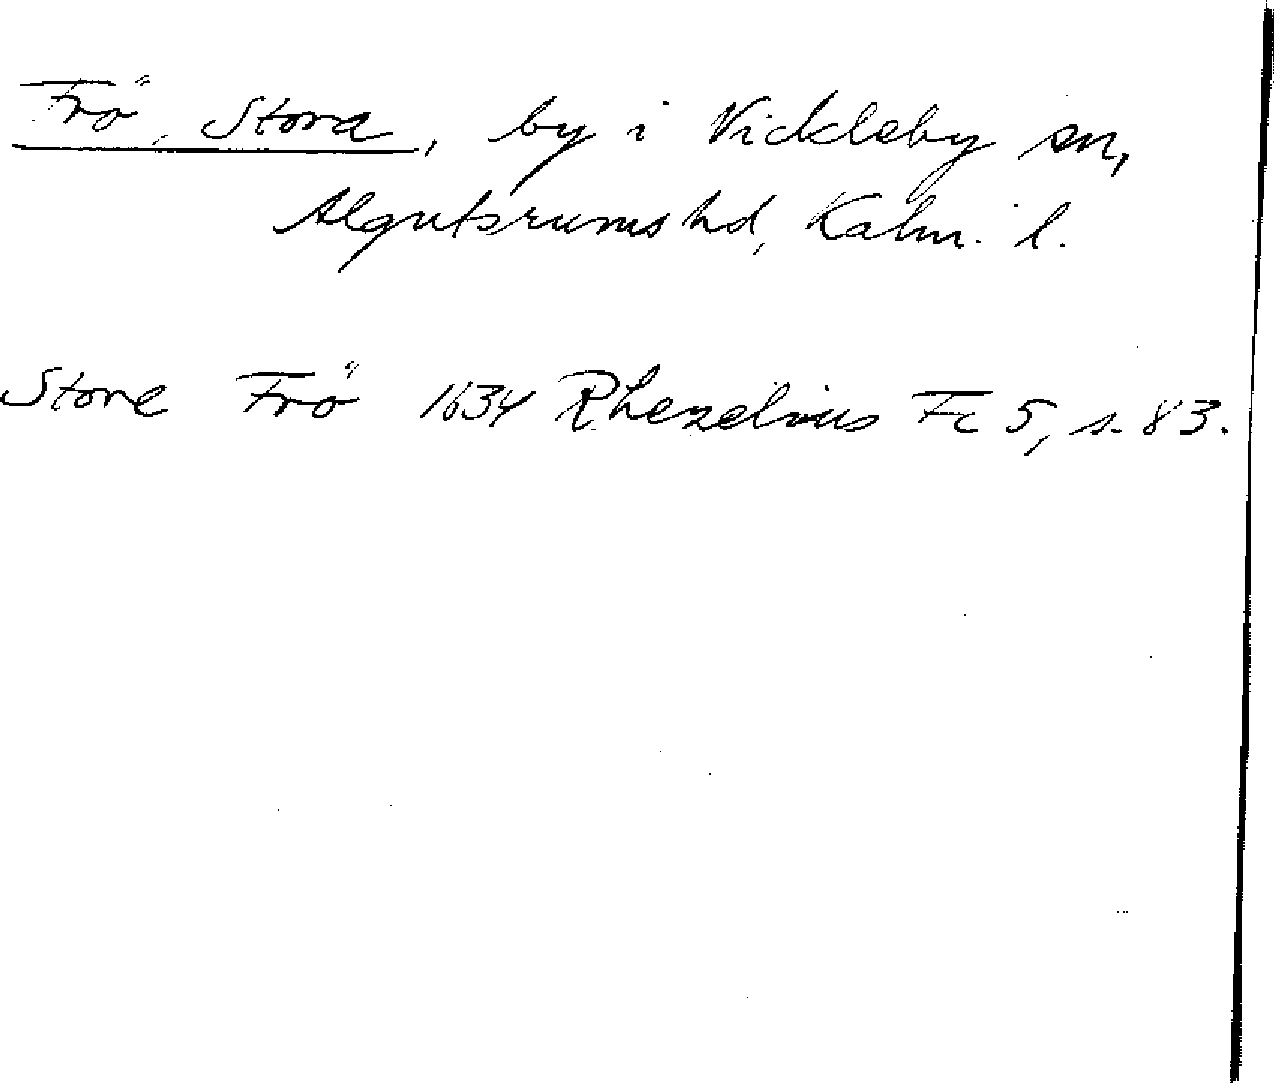 Frö, Stora, by i Vickleby sn,
Algutsrums hd, Kalm. l.
Store Frö 1634 Rhezelius Fc 5, s. 83.